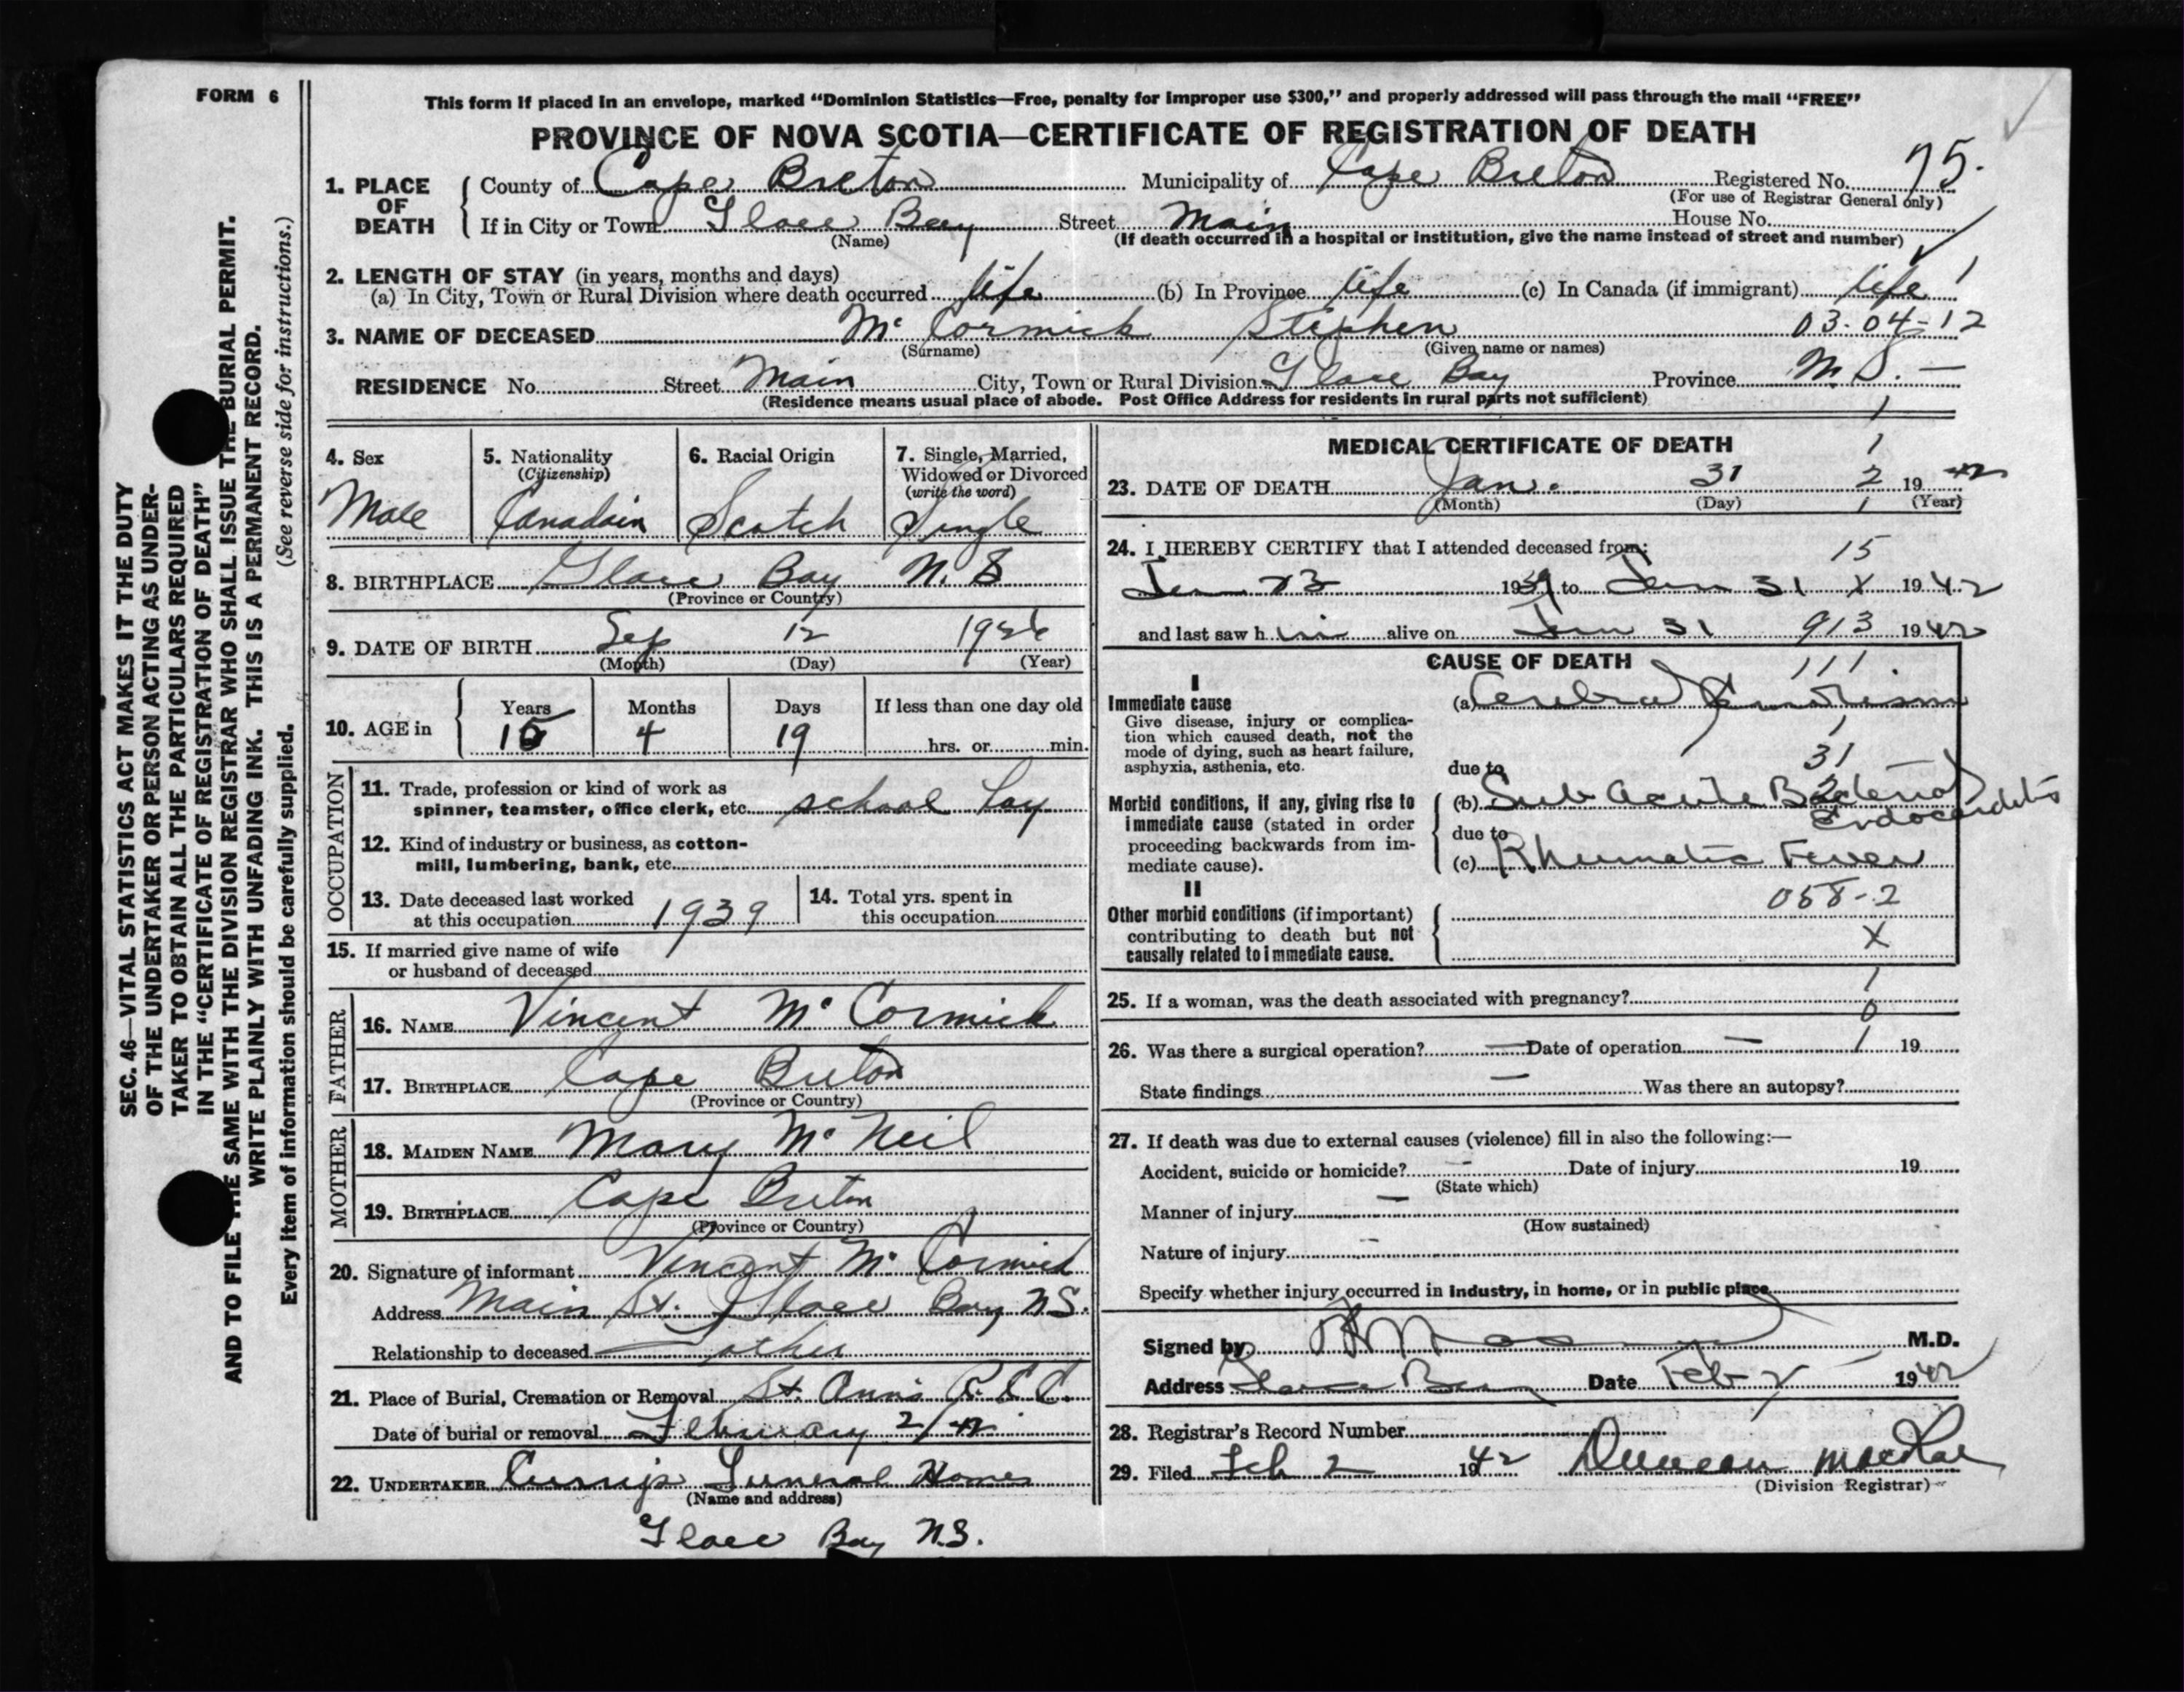 FORM 6
This form if placed in an envelope, marked "Dominion Statistics—Free, penalty for improper use $300," and properly addressed will pass through the mail "FREE"
PROVINCE OF NOVA SCOTIA—CERTIFICATE OF REGISTRATION OF DEATH
1. PLACE OF DEATH { County of Cape Breton Municipality of Cape Breton Registered No. 75.
(For use of Registrar General only)
If in City or Town Glace Bay Street Main House No.
(Name) (If death occurred in a hospital or institution, give the name instead of street and number)
2. LENGTH OF STAY (in years, months and days)
(a) In City, Town or Rural Division where death occurred life (b) In Province life (c) In Canada (if immigrant) life 1
3. NAME OF DECEASED Mc Cormick Stephen 03-04-12
(Surname) (Given name or names)
RESIDENCE No. Street Main City, Town or Rural Division Glace Bay Province N.S. —
(Residence means usual place of abode. Post Office Address for residents in rural parts not sufficient)
1
4. Sex 5. Nationality 6. Racial Origin 7. Single, Married,
(Citizenship) Widowed or Divorced
(write the word)
Male Canadain Scotch Single
8. BIRTHPLACE Glace Bay N.S
(Province or Country)
9. DATE OF BIRTH Sep 12 1926
(Month) (Day) (Year)
10. AGE in { Years Months Days If less than one day old
15 4 19 hrs. or min.
OCCUPATION
11. Trade, profession or kind of work as
spinner, teamster, office clerk, etc. school boy
12. Kind of industry or business, as cotton-
mill, lumbering, bank, etc.
13. Date deceased last worked
at this occupation 1939
14. Total yrs. spent in
this occupation
15. If married give name of wife
or husband of deceased
FATHER
16. NAME Vincent Mc Cormick
17. BIRTHPLACE Cape Breton
(Province or Country)
MOTHER
18. MAIDEN NAME Mary Mc Neil
19. BIRTHPLACE Cape Breton
(Province or Country)
20. Signature of informant Vincent Mc Cormick
Address Main St. Glace Bay N.S.
Relationship to deceased Father
21. Place of Burial, Cremation or Removal St. Ann's R.C.C.
Date of burial or removal February 2/42
22. UNDERTAKER Curry's Funeral Home
(Name and address)
Glace Bay N.S.
MEDICAL CERTIFICATE OF DEATH
1
23. DATE OF DEATH Jan. 31 2 1942
(Month) (Day) 1 (Year)
24. I HEREBY CERTIFY that I attended deceased from:
15
Jan 23 1939 to Jan 31 X 1942
and last saw him alive on Jan 31 913 1942
CAUSE OF DEATH
111
I
Immediate cause (a) Cerebral Embolism
Give disease, injury or complica-
tion which caused death, not the
mode of dying, such as heart failure,
asphyxia, asthenia, etc.
1
31
2
due to
Morbid conditions, if any, giving rise to
immediate cause (stated in order
proceeding backwards from im-
mediate cause).
(b) Sub acute Bacterial
Endocarditis
due to
(c) Rheumatic Fever
II
Other morbid conditions (if important)
contributing to death but not
causally related to immediate cause.
058-2
X
1
25. If a woman, was the death associated with pregnancy?
0
26. Was there a surgical operation? — Date of operation — 1 19
State findings — Was there an autopsy?
27. If death was due to external causes (violence) fill in also the following:—
Accident, suicide or homicide? - Date of injury 19
(State which)
Manner of injury —
(How sustained)
Nature of injury -
Specify whether injury occurred in industry, in home, or in public place
Signed by M.D.
Address Glace Bay Date Feb 2 1942
28. Registrar's Record Number
29. Filed Feb 2 1942 Duncan MacRae
(Division Registrar)
SEC. 46—VITAL STATISTICS ACT MAKES IT THE DUTY
OF THE UNDERTAKER OR PERSON ACTING AS UNDER-
TAKER TO OBTAIN ALL THE PARTICULARS REQUIRED
IN THE "CERTIFICATE OF REGISTRATION OF DEATH"
AND TO FILE THE SAME WITH THE DIVISION REGISTRAR WHO SHALL ISSUE THE BURIAL PERMIT.
WRITE PLAINLY WITH UNFADING INK. THIS IS A PERMANENT RECORD.
Every item of information should be carefully supplied. (See reverse side for instructions.)